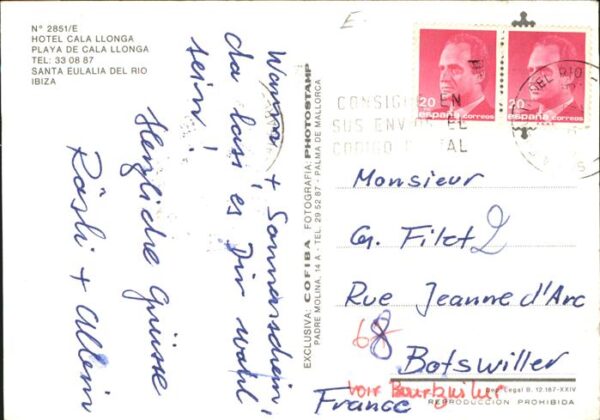 Nº 2851/E
HOTEL CALA LLONGA
PLAYA DE CALA LLONGA
TEL: 33 08 87
SANTA EULALIA DEL RIO
IBIZA
+ Sonnenschein,
da lässt es Dir wohl
sein!
Herzliche Grüsse
Rösli +
EXCLUSIVA: COFIBA FOTOGRAFIA: PHOTOSTAMP
PADRE MOLINA, 14 A - TEL. 29 52 87 - PALMA DE MALLORCA
E.
20
españa correos
20
españa correos
CONSIGNE EN
SUS ENVIOS EL
CODIGO POSTAL
DEL RIO
Monsieur
G. Filet 2
Rue Jeanne d'Arc
68
Botswiller
voir Bourtzwiller
France
Dep. Legal B. 12.187-XXIV
REPRODUCCION PROHIBIDA